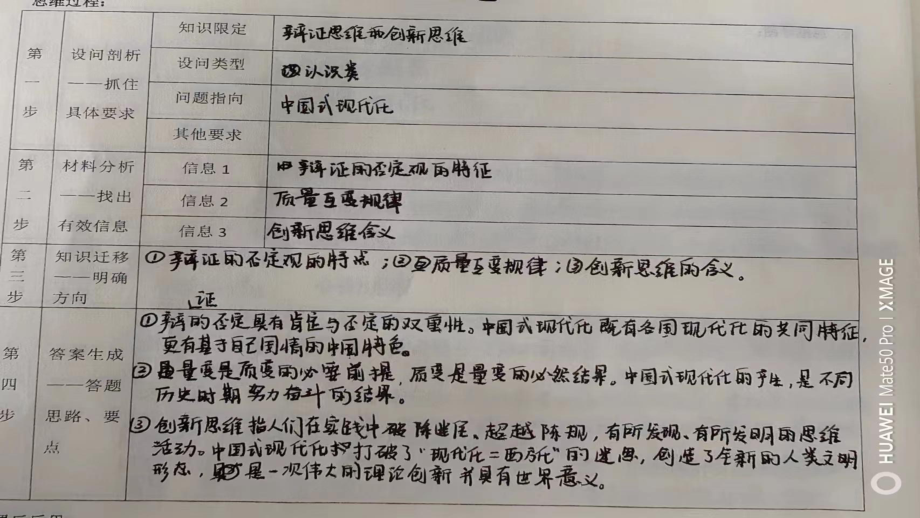 思维过程：
第一步 设问剖析——抓住具体要求 知识限定 辩证思维和创新思维
设问类型 认识类
问题指向 中国式现代化
其他要求
第二步 材料分析——找出有效信息 信息1 辩证的否定观的特征
信息2 质量互变规律
信息3 创新思维含义
第三步 知识迁移——明确方向 ①辩证的否定观的特点；②质量互变规律；③创新思维的含义。
证
第四步 答案生成——答题思路、要点 ①辩的否定具有肯定与否定的双重性。中国式现代化既有各国现代化的共同特征，
更有基于自己国情的中国特色。
②量变是质变的必要前提，质变是量变的必然结果。中国式现代化的产生，是不同
历史时期努力奋斗的结果。
③创新思维指人们在实践中破除迷信、超越陈规，有所发现、有所发明的思维
活动。中国式现代化打破了“现代化=西方化”的迷思，创造了全新的人类文明
形态，是一次伟大的理论创新并具有世界意义。
HUAWEI Mate50 Pro | XMAGE